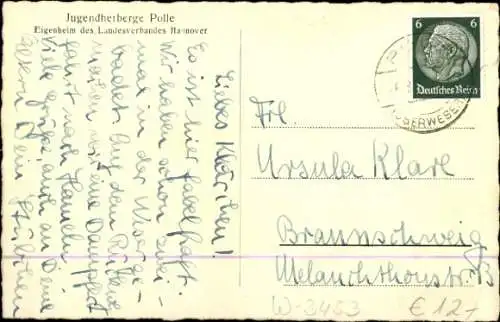 Jugendherberge Polle
Eigenheim des Landesverbandes Hannover
Liebes Klärchen!
Es ist hier fabelhaft.
Wir haben schon zwei-
mal in der Weser ge-
badet. Auf dem Rückweg
machen wir eine Dampfer-
fahrt nach Hameln.
Viele Grüße auch an Deine
Eltern Dein
6 6
Deutsches Reich
(OBERWESER)
Frl.
Ursula Klare
Braunschweig
Melanchthonstr. 
W-3453 € 12,-